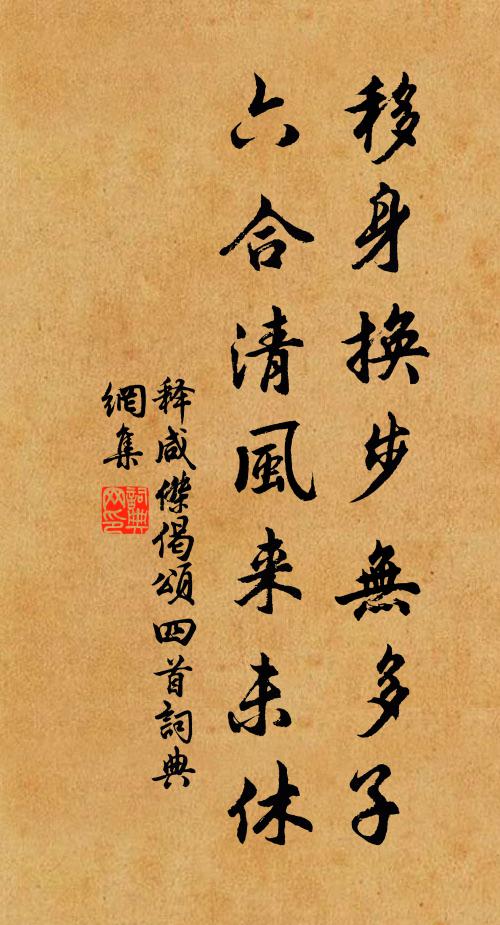 移身換步無多子
六合清風来未休
释咸傑偈頌四首詞典
網集
詞典
网印